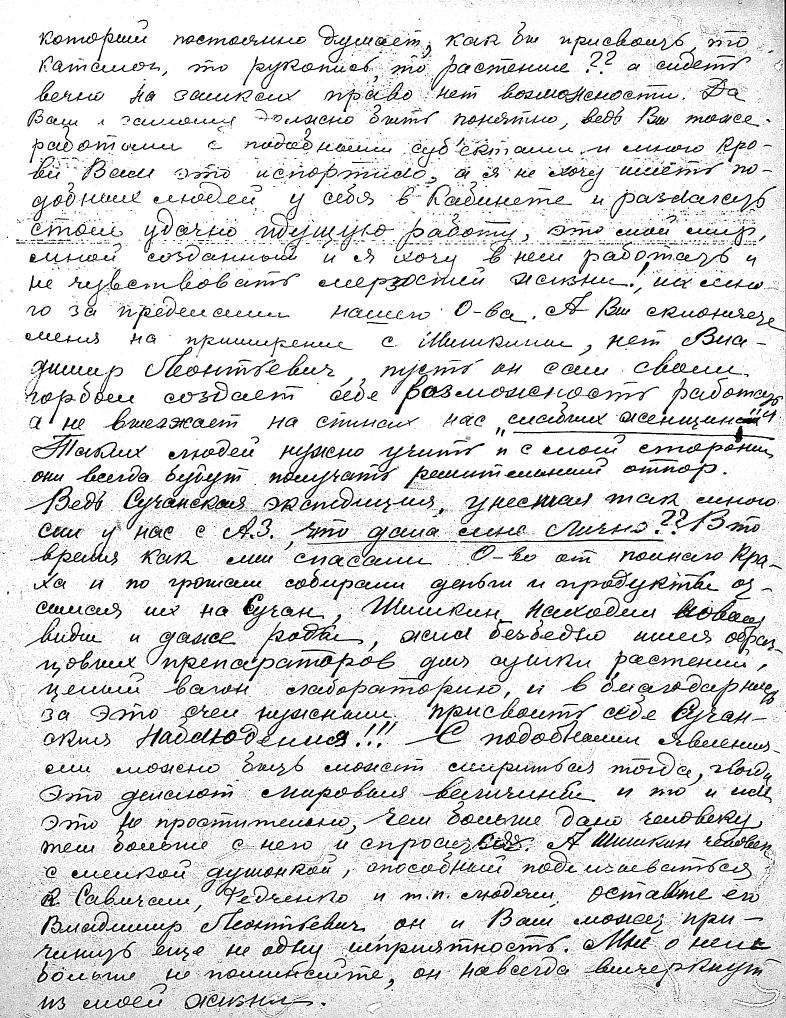 который постоянно думает, как бы присвоить, то
каталог, то рукопись, то растение?? а сидеть
вечно на замках право нет возможности. Да
Вам и самому должно быть понятно, ведь Вы тоже
работали с подобными суб'ектами и много кро-
ви Вам это испортило, а я не хочу иметь по-
добных людей у себя в Кабинете и
столь удачно идущую работу, это мой мир,
мной созданный и я хочу в нем работать и
не чувствовать мерзостей жизни, их мно-
го за пределами нашего О-ва. А Вы склоняете
меня на примирение с Шишкиным, нет Вла-
димир Леонтьевич, пусть он сам своим
горбом создает себе возможность работать
а не выезжает на спинах нас "слабых женщин"
Таких людей нужно учить и с моей стороны
они всегда будут получать решительный отпор.
Ведь Сучанская экспедиция, унесшая так много
сил у нас с А.З., что дала мне лично?? В то
время как мы спасали О-во от полного кра-
ха и по грошам собирали деньги и продукты от-
сылая их на Сучан, Шишкин находил новые
виды и даже роды, жил безбедно имея образ-
цовых препараторов для сушки растений,
целый вагон лабораторию, и в благодарность
за это счел нужным присвоить себе Сучан-
ския Наблюдения!!! С подобными явления-
ми можно быть может мириться тогда, когда
это делают мировыя величины и то и им
это не простительно, чем больше дано человеку
тем больше с него и спросится. А Шишкин человек
с мелкой душонкой, способный подлизываться
к Савичам, Федченко и т.п. людям, оставьте его
Владимир Леонтьевич он и Вам может при-
чинить еще не одну неприятность. Мне о нем
больше не поминайте, он навсегда вычеркнут
из моей жизни.